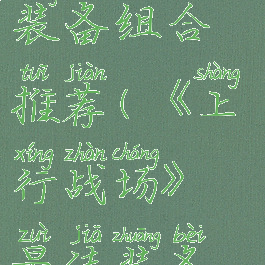 装备组合
tuī jiàn shàng
推荐(《上
xíng zhàn chǎng
行战场》
zuì jiā zhuāng bèi
最佳装备